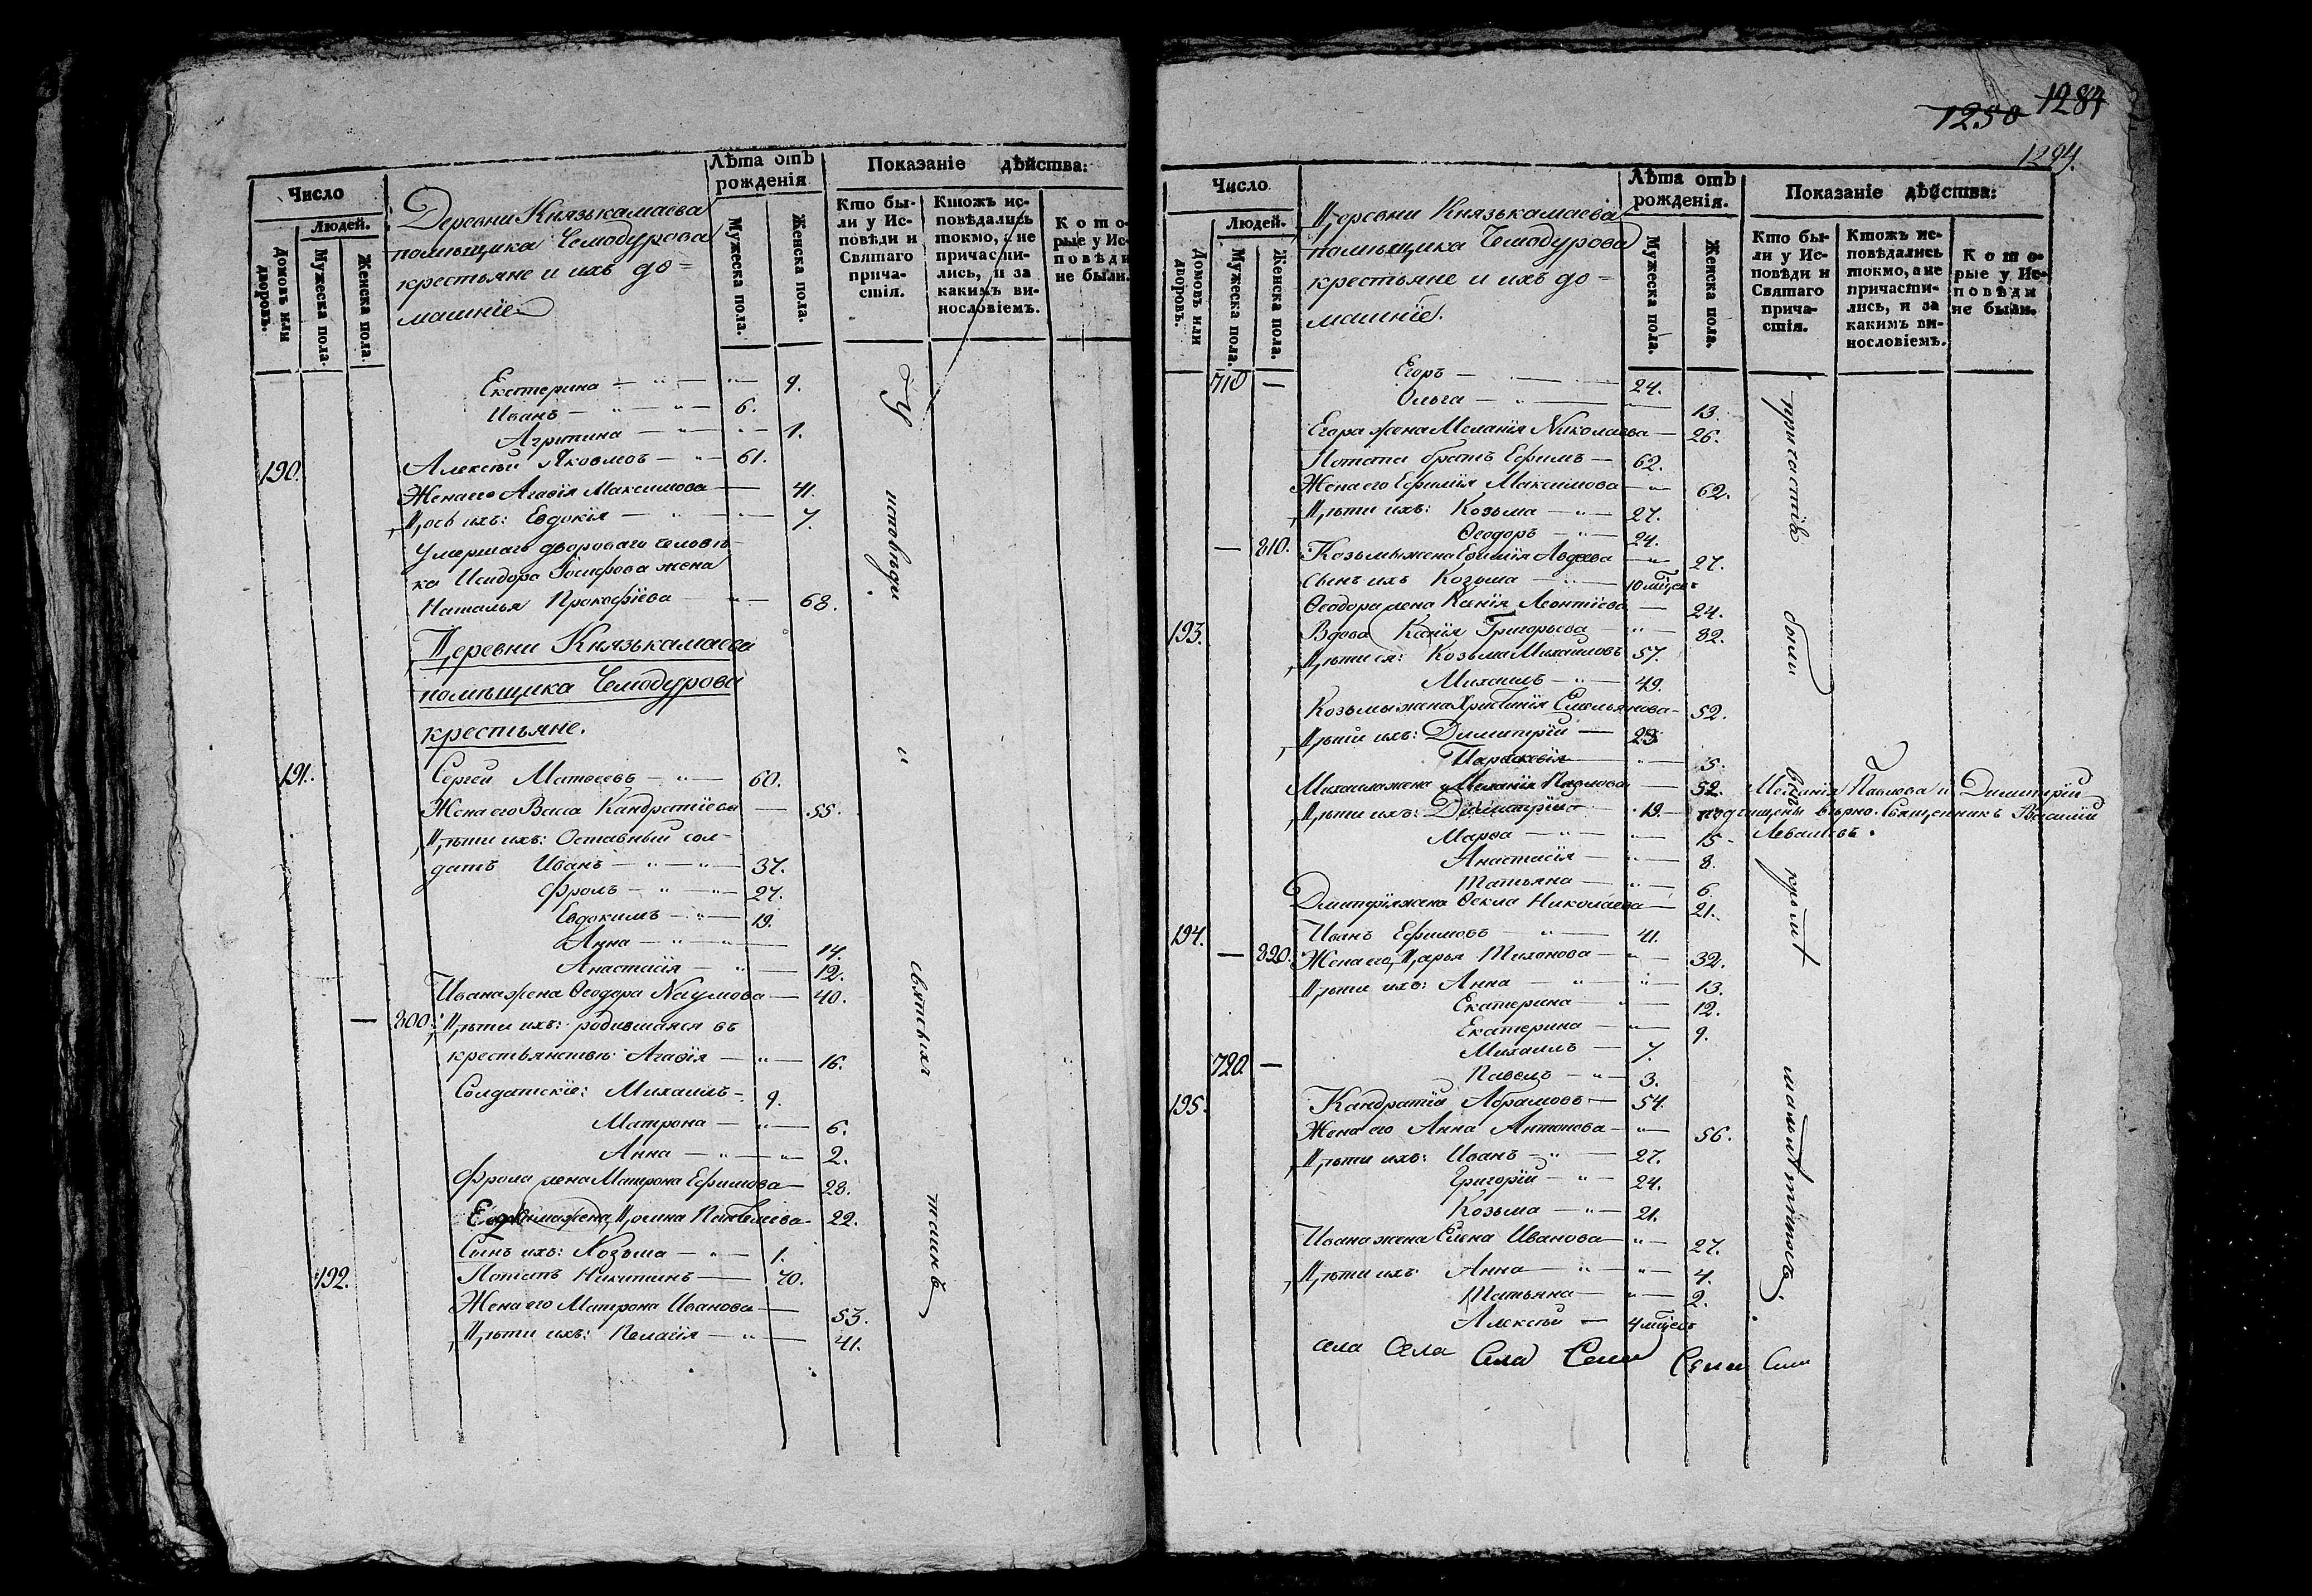 Число
Людей.
Домовъ или дворовъ.
Мужеска пола.
Женска пола.
Деревни Князькамаева
помѣщика Чемодурова
крестьяне и ихъ до=
машніе
Лѣта отъ рожденія
Мужеска пола.
Женска пола.
Показаніе дѣйства:
Кто бы-
ли у Ис-
повѣди и
Святаго
прича-
стія.
Ктожъ ис-
повѣдались
токмо, а не
причасти-
лись, и за
какимъ ви-
нословіемъ.
Кото-
рые у Ис-
повѣди
не были.
Екатерина — " — 9.
Иванъ — " — " — 6.
Агрипина — " — 1.
190. Алексѣй Яковлевъ — " — 61.
Жена его Агафія Максимова — 41.
Дочь ихъ: Евдокія — " — 7.
Умершаго двороваго человѣ-
ка Исидора Іосифова жена
Наталья Прокофіева — " — 68.
Деревни Князькамаева
помѣщика Чемодурова
крестьяне.
191. Сергей Матвеевъ — " — 60.
Жена его Васса Кандратіева — 55.
Дѣти ихъ: Отставный сол-
датъ Иванъ — " — " — 37.
Фролъ — " — " — 27.
Евдокимъ — " — 19.
Анна — " — " — 14.
Анастасія — " — 12.
Ивана жена Ѳеодора Наумова — 40.
— 800. Дѣти ихъ: родившаяся въ
крестьянствѣ: Агафія — " — 16.
Солдатскіе: Михаилъ — 9.
Матрона — " — 6.
Анна — " — " — 2.
Фрола жена Матрона Ефимова — 28.
Евдокима жена Домна Пантелеева — 22.
Сынъ ихъ: Козьма — " — 1.
192. Потапъ Никитинъ — 70.
Жена его Матрона Иванова — 53.
Дѣти ихъ: Пелагія — " — 41.
У исповѣди и святыхъ таинъ
1250 1284
1294.
Число
Людей.
Домовъ или дворовъ.
Мужеска пола.
Женска пола.
Деревни Князькамаева
помѣщика Чемодурова
крестьяне и ихъ до=
машніе.
Лѣта отъ рожденія.
Мужеска пола.
Женска пола.
Показаніе дѣйства:
Кто бы-
ли у Ис-
повѣди и
Святаго
прича-
стія.
Ктожъ ис-
повѣдались
токмо, а не
причасти-
лись, и за
какимъ ви-
нословіемъ.
Кото-
рые у Ис-
повѣди
не были.
710 — Егоръ — 24.
Ольга — " — 13.
Егора жена Меланія Николаева — 26.
Потапа братъ Ефимъ — 62.
Жена его Ефимія Максимова — " — 62.
Дѣти ихъ: Козьма — " — 27.
Ѳеодоръ — " — 24.
— 810. Козьмы жена Евфимія Авдеева — " — 27.
Сынъ ихъ Козьма — " — 10 мѣсец.
Ѳеодора жена Ксенія Леонтіева — 24.
193. Вдова Ксенія Григорьева — " — 82.
Дѣти ея: Козьма Михаиловъ 57.
Михаилъ — " — 49.
Козьмы жена Христинія Емельянова — 52.
Дѣти ихъ: Димитрій — 23.
Параскевія — " — 5.
Михаила жена Меланія Павлова — 52. Меланія Павлова и Димитрій
Дѣти ихъ: Димитрій — 19. — подчищены вѣрно. Священникъ Василій
Марѳа — " — 15. Левашевъ.
Анастасія — " — 8.
Татьяна — " — 6.
Дмитрія жена Ѳекла Николаева — 21.
194. Иванъ Ефимовъ — " — 41.
— 820. Жена его Дарья Тихонова — " — 32.
Дѣти ихъ: Анна — " — " — 13.
Екатерина — " — 12.
Екатерина — " — 9.
Михаилъ — 7.
720 — Павелъ — " — 3.
195. Кандратій Абрамовъ — 54.
Жена его Анна Антонова — " — 56.
Дѣти ихъ: Иванъ — " — 27.
Григорій — " — 24.
Козьма — " — 21.
Ивана жена Елена Иванова — " — 27.
Дѣти ихъ: Анна — " — " — 4.
Татьяна — " — 2.
Алексѣй — 4 мѣсец.
села Села Села
причастіѣ были всѣ кромѣ малолѣтнихъ.